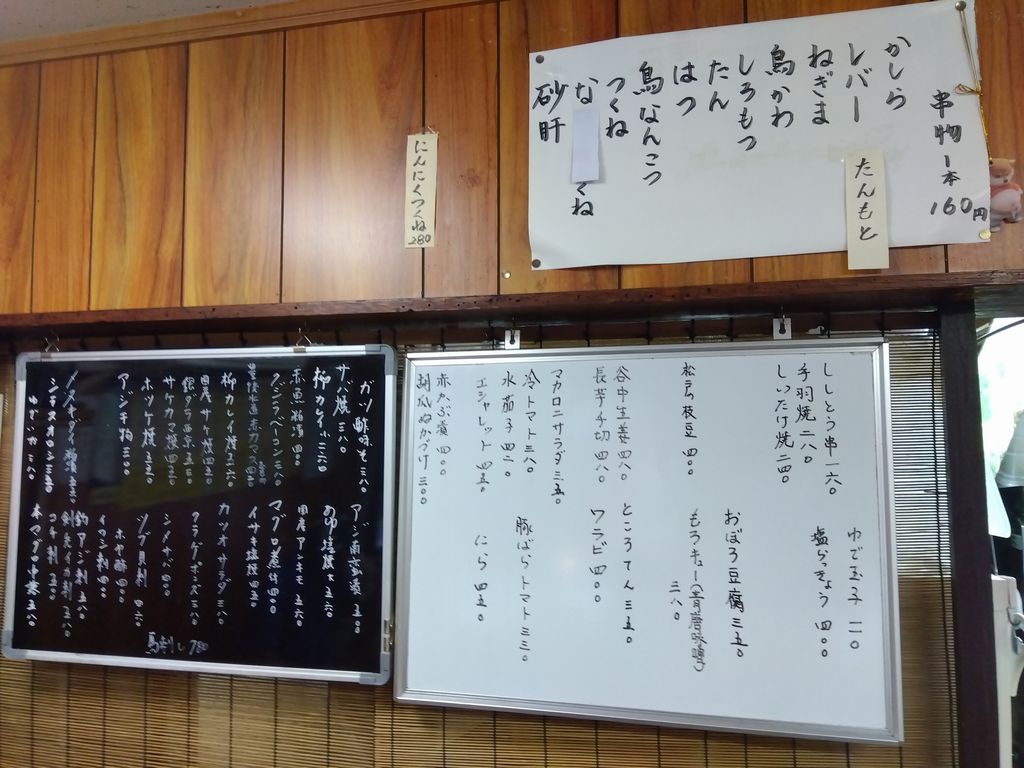 串物1本
160円
たんもと
かしら
レバー
ねぎま
鳥かわ
しろもつ
たん
はつ
鳥なんこつ
つくね
な くね
砂肝
にんにくつくね
280
ししとう串 一六〇
手羽焼 二八〇
しいたけ焼 二四〇
ゆで玉子 一一〇
塩らっきょう 四〇〇
松戸枝豆 四〇〇
おぼろ豆腐 三五〇
もろキュー(青唐味噌)
三八〇
谷中生姜 四八〇
長芋千切 四八〇
ところてん 三五〇
ワラビ 四〇〇
マカロニサラダ 三五〇
冷トマト 三八〇
水茄子 四二〇
エシャレット 四五〇
豚ばらトマト 三三〇
にら 四五〇
赤かぶ漬 四〇〇
胡瓜ぬかづけ 三〇〇
ガツ酢味そ 三八〇
サバ焼 三八〇
赤魚粕漬 四〇〇
クジラベーコン
柳カレイ焼
国産サケ焼
銀ダラ西京
サケカマ焼
ホッケ焼 五五〇
アジ干物 三〇〇
アジ南蛮漬 五〇〇
国産アンキモ 五六〇
マグロ煮付 四〇〇
イサキ塩焼 四五〇
カツオサラダ 三八〇
クラゲポンズ 三八〇
シメサバ 四〇〇
ツブ貝刺 四二〇
ホヤ酢 四〇〇
イワシ刺 四〇〇
釣アジ刺 五八〇
コチ刺 五五〇
本マグロ中落 五八〇
馬刺し 780